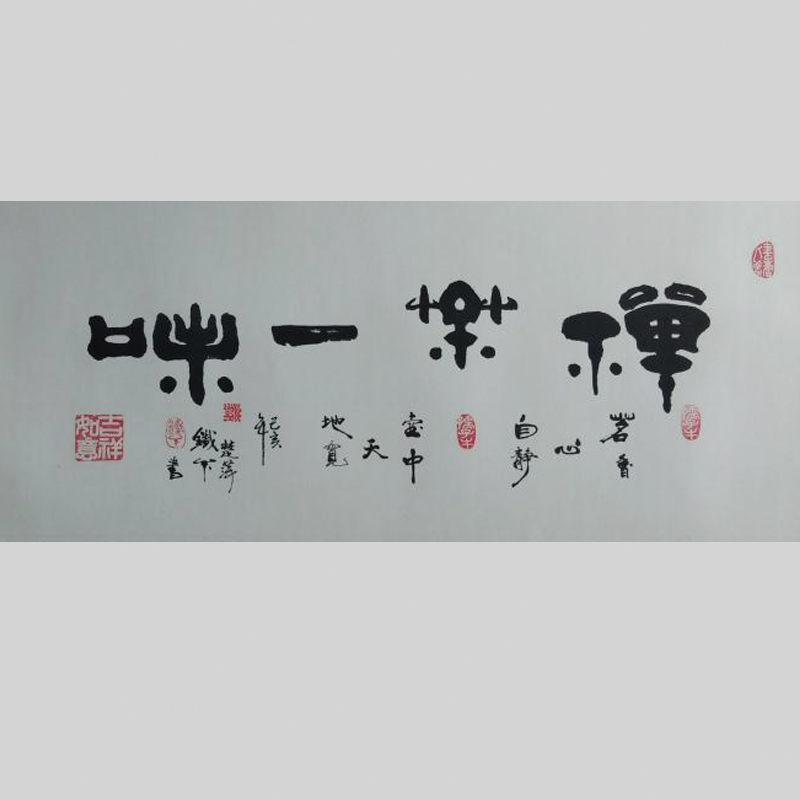 禪茶一味
茗香
心
自靜
壺中
天
地寬
己亥
年
楚萍
鐵
書
吉祥如意